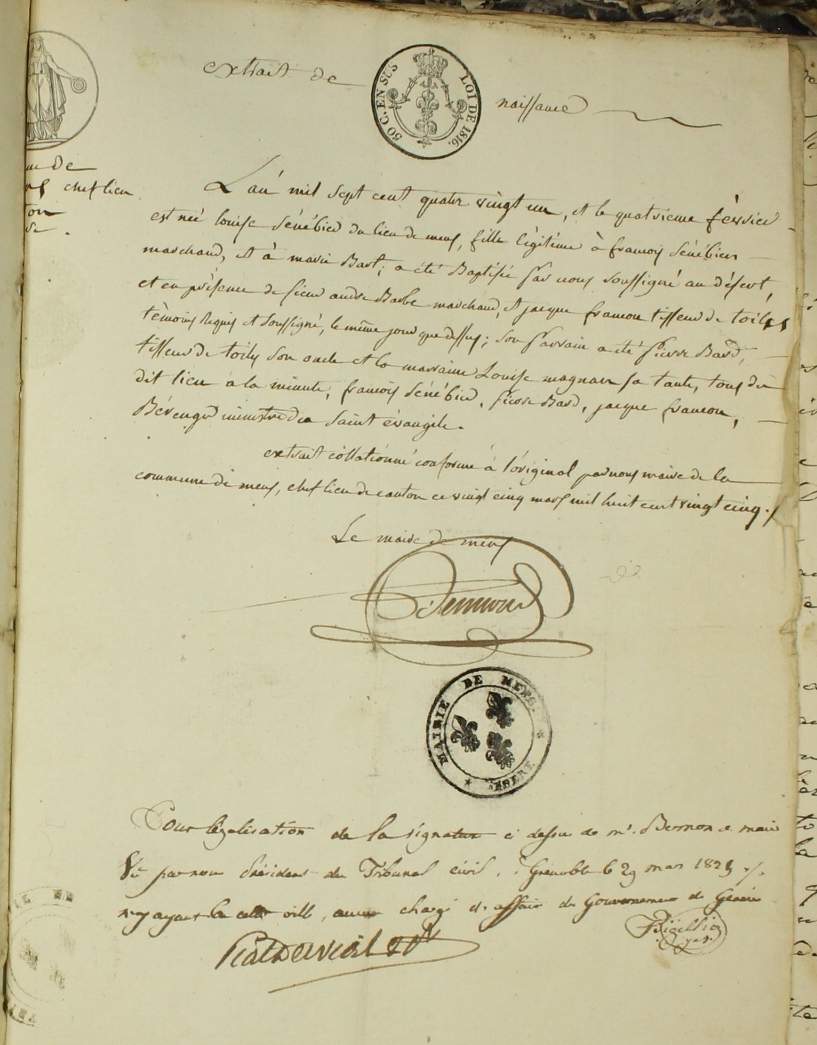 extrait de naissance
50 C. EN SUS LOI DE 1816.
de
chef lieu
L'an mil sept cent quatre vingt un, et le quatrieme fevrier
est née Louise Sénébier du lieu de mens, fille légitime à francois Sénébier
marchand, et à marie Bart; a été Baptisée par nous soussigné au désert,
et en présence de sieur andre Barbe marchand, et jacque francou tisseur de toiles
témoins requis et soussigné, le même jour que dessus; son parrain a été pierre Bard,
tisseur de toiles son oncle et la marraine Louise magnan sa tante, tous du
dit lieu à la minute, francois Sénébier, pierre Bard, jacque francou,
Bérenger ministre du saint évangile.
extrait collationné conforme à l'original par nous maire de la
commune de mens, chef lieu de canton ce vingt cinq mars mil huit cent vingt cinq.
Le maire de mens
MAIRIE DE MENS ISERE
Pour légalisation de la signature ci dessus de mr. maire
Vû par nous Président du Tribunal civil, Grenoble le 29 mars 1825
n'y ayant en cette ville, aucun chargé d'affaire du Gouvernement de